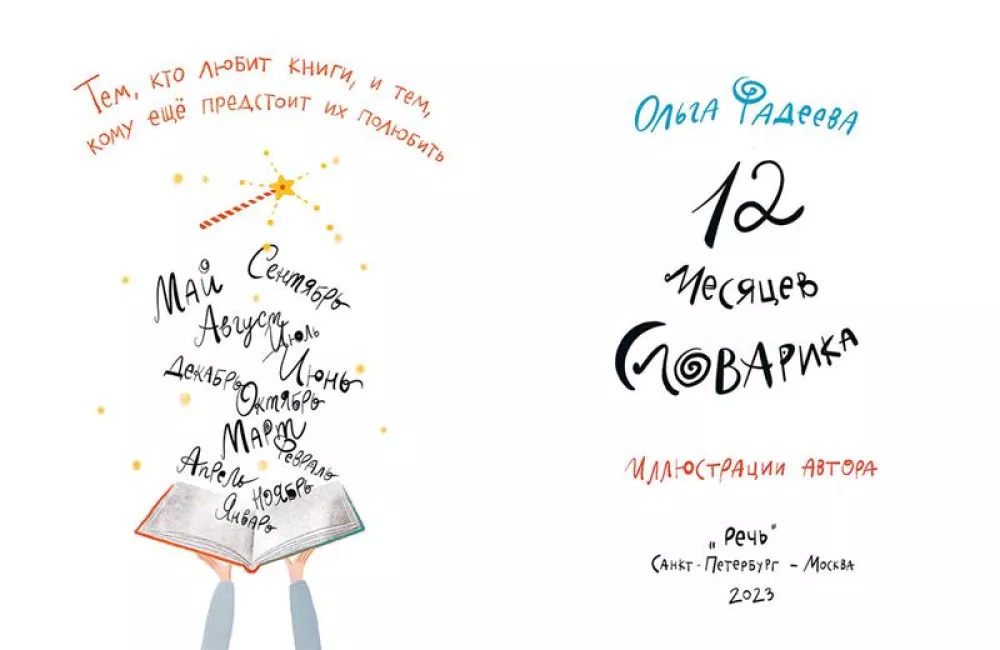 Тем, кто любит книги, и тем,
кому ещё предстоит их полюбить
Май
Сентябрь
Август
Июль
Июнь
Декабрь
Октябрь
Март
Февраль
Апрель
Ноябрь
Январь
Ольга Фадеева
12
месяцев
Словарика
Иллюстрации автора
„Речь“
Санкт-Петербург – Москва
2023